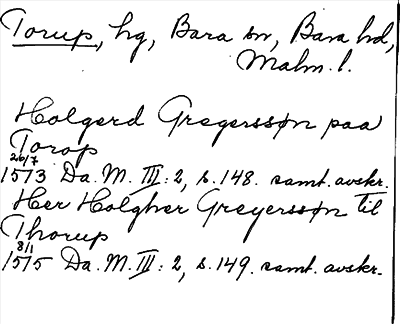 Torup, hg, Bara sn, Bara hd,
Malm. l.
Holgerd Gregerssøn paa
Torop
26/7
1513 Da. M. III: 2, s. 148. samt. avskr.
Her Holgher Greyerssøn til
Thorup
8/1
1515 Da. M. III: 2, s. 149. samt. avskr.